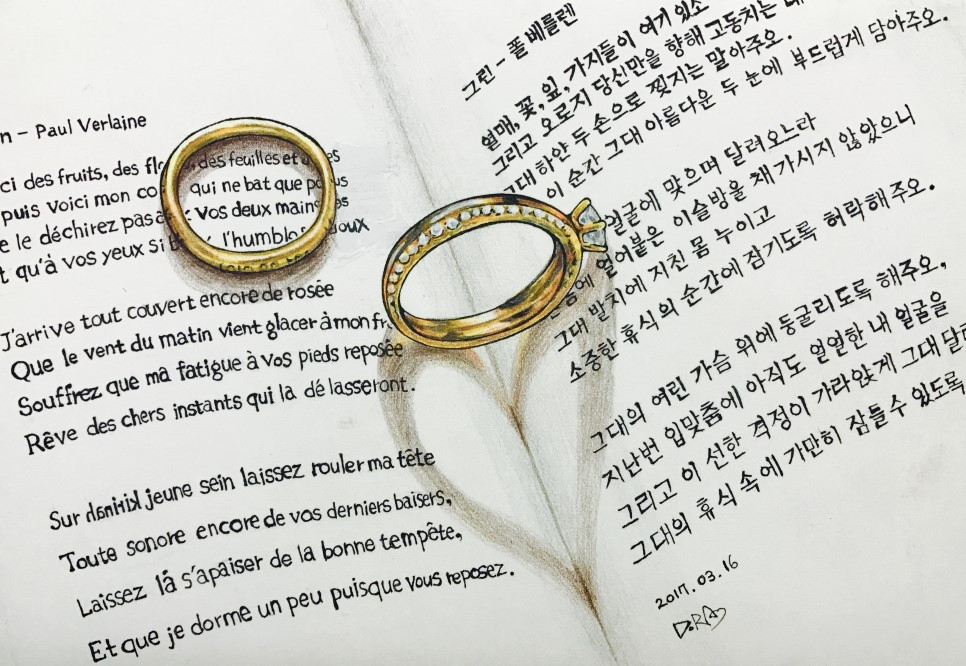 n – Paul Verlaine
ci des fruits, des des feuilles et
puis Voici mon co qui ne bat que
e le déchirez pas vos deux mains
t qu'à vos yeux si l'humble
J'arrive tout couvert encore de rosée
Que le vent du matin vient glacer à mon fr
Souffrez que ma fatigue à vos pieds reposée
Rêve des chers instants qui la délasseront.
Sur jeune sein laissez rouler ma tête
Toute sonore encore de vos derniers baisers,
Laissez là s'apaiser de la bonne tempête,
Et que je dorme un peu puisque vous reposez.
그린 – 폴 베를렌
열매, 꽃, 잎, 가지들이 여기 있소
그리고 오로지 당신만을 향해 고동치는 내
그대 하얀 두 손으로 찢지는 말아주오.
이 순간 그대 아름다운 두 눈에 부드럽게 담아주오.
얼굴에 맞으며 달려오느라
얼어붙은 이슬방울 채 가시지 않았으니
그대 발치에 지친 몸 누이고
소중한 휴식의 순간에 잠기도록 허락해주오.
그대의 여린 가슴 위에 둥굴리도록 해주오,
지난번 입맞춤에 아직도 얼얼한 내 얼굴을
그리고 이 선한 격정이 가라앉게 그대 달래
그대의 휴식 속에 가만히 잠들수 있도록
2017. 03. 16